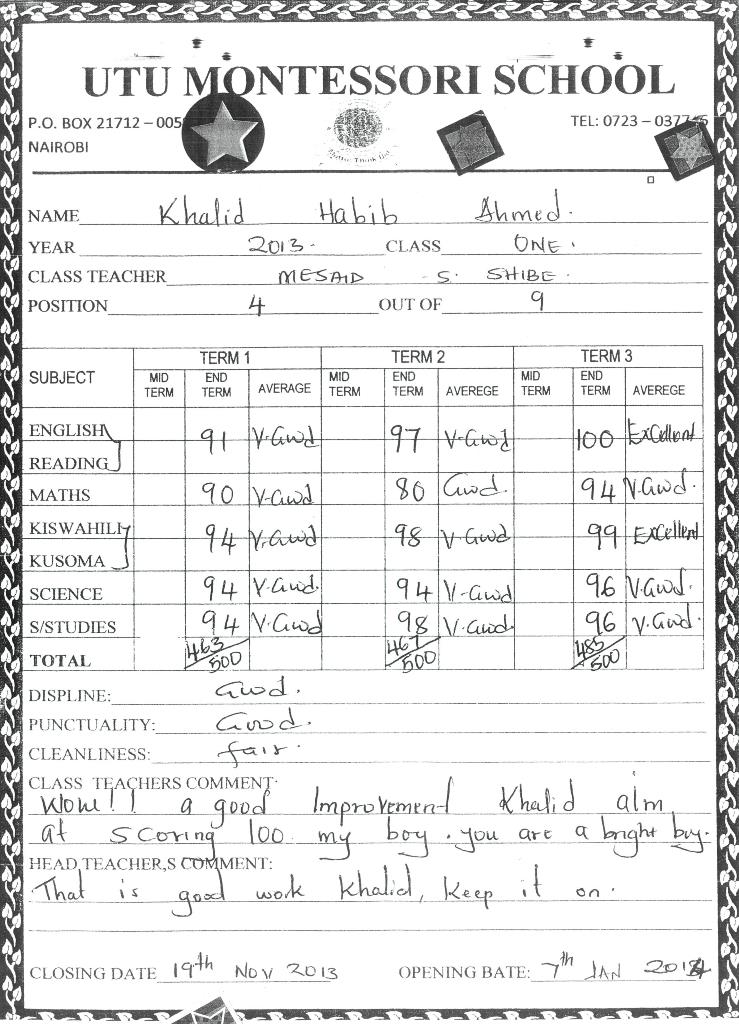 UTU MONTESSORI SCHOOL
P.O. BOX 21712 – 005 TEL: 0723 – 037
NAIROBI
NAME Khalid Habib Ahmed.
YEAR 2013. CLASS ONE.
CLASS TEACHER MESAID S. SHIBE.
POSITION 4 OUT OF 9
SUBJECT TERM 1 TERM 2 TERM 3
MID TERM END TERM AVERAGE MID TERM END TERM AVEREGE MID TERM END TERM AVEREGE
ENGLISH 91 V.Good 97 V-Good 100 Excellent
READING
MATHS 90 V-Good 80 Good. 94 V.Good.
KISWAHILI 94 V.Good 98 V-Good 99 Excellent
KUSOMA
SCIENCE 94 V.Good. 94 V-Good 96 V.Good.
S/STUDIES 94 V.Good 98 V.Good. 96 V.Good.
TOTAL 463/500 467/500 485/500
DISPLINE: Good.
PUNCTUALITY: Good.
CLEANLINESS: fair.
CLASS TEACHERS COMMENT:
Wow!! a good Improvement Khalid aim
at scoring 100 my boy. you are a bright boy.
HEAD TEACHER,S COMMENT:
That is good work Khalid, Keep it on.
CLOSING DATE 19th NOV 2013 OPENING BATE: 7th JAN 2014